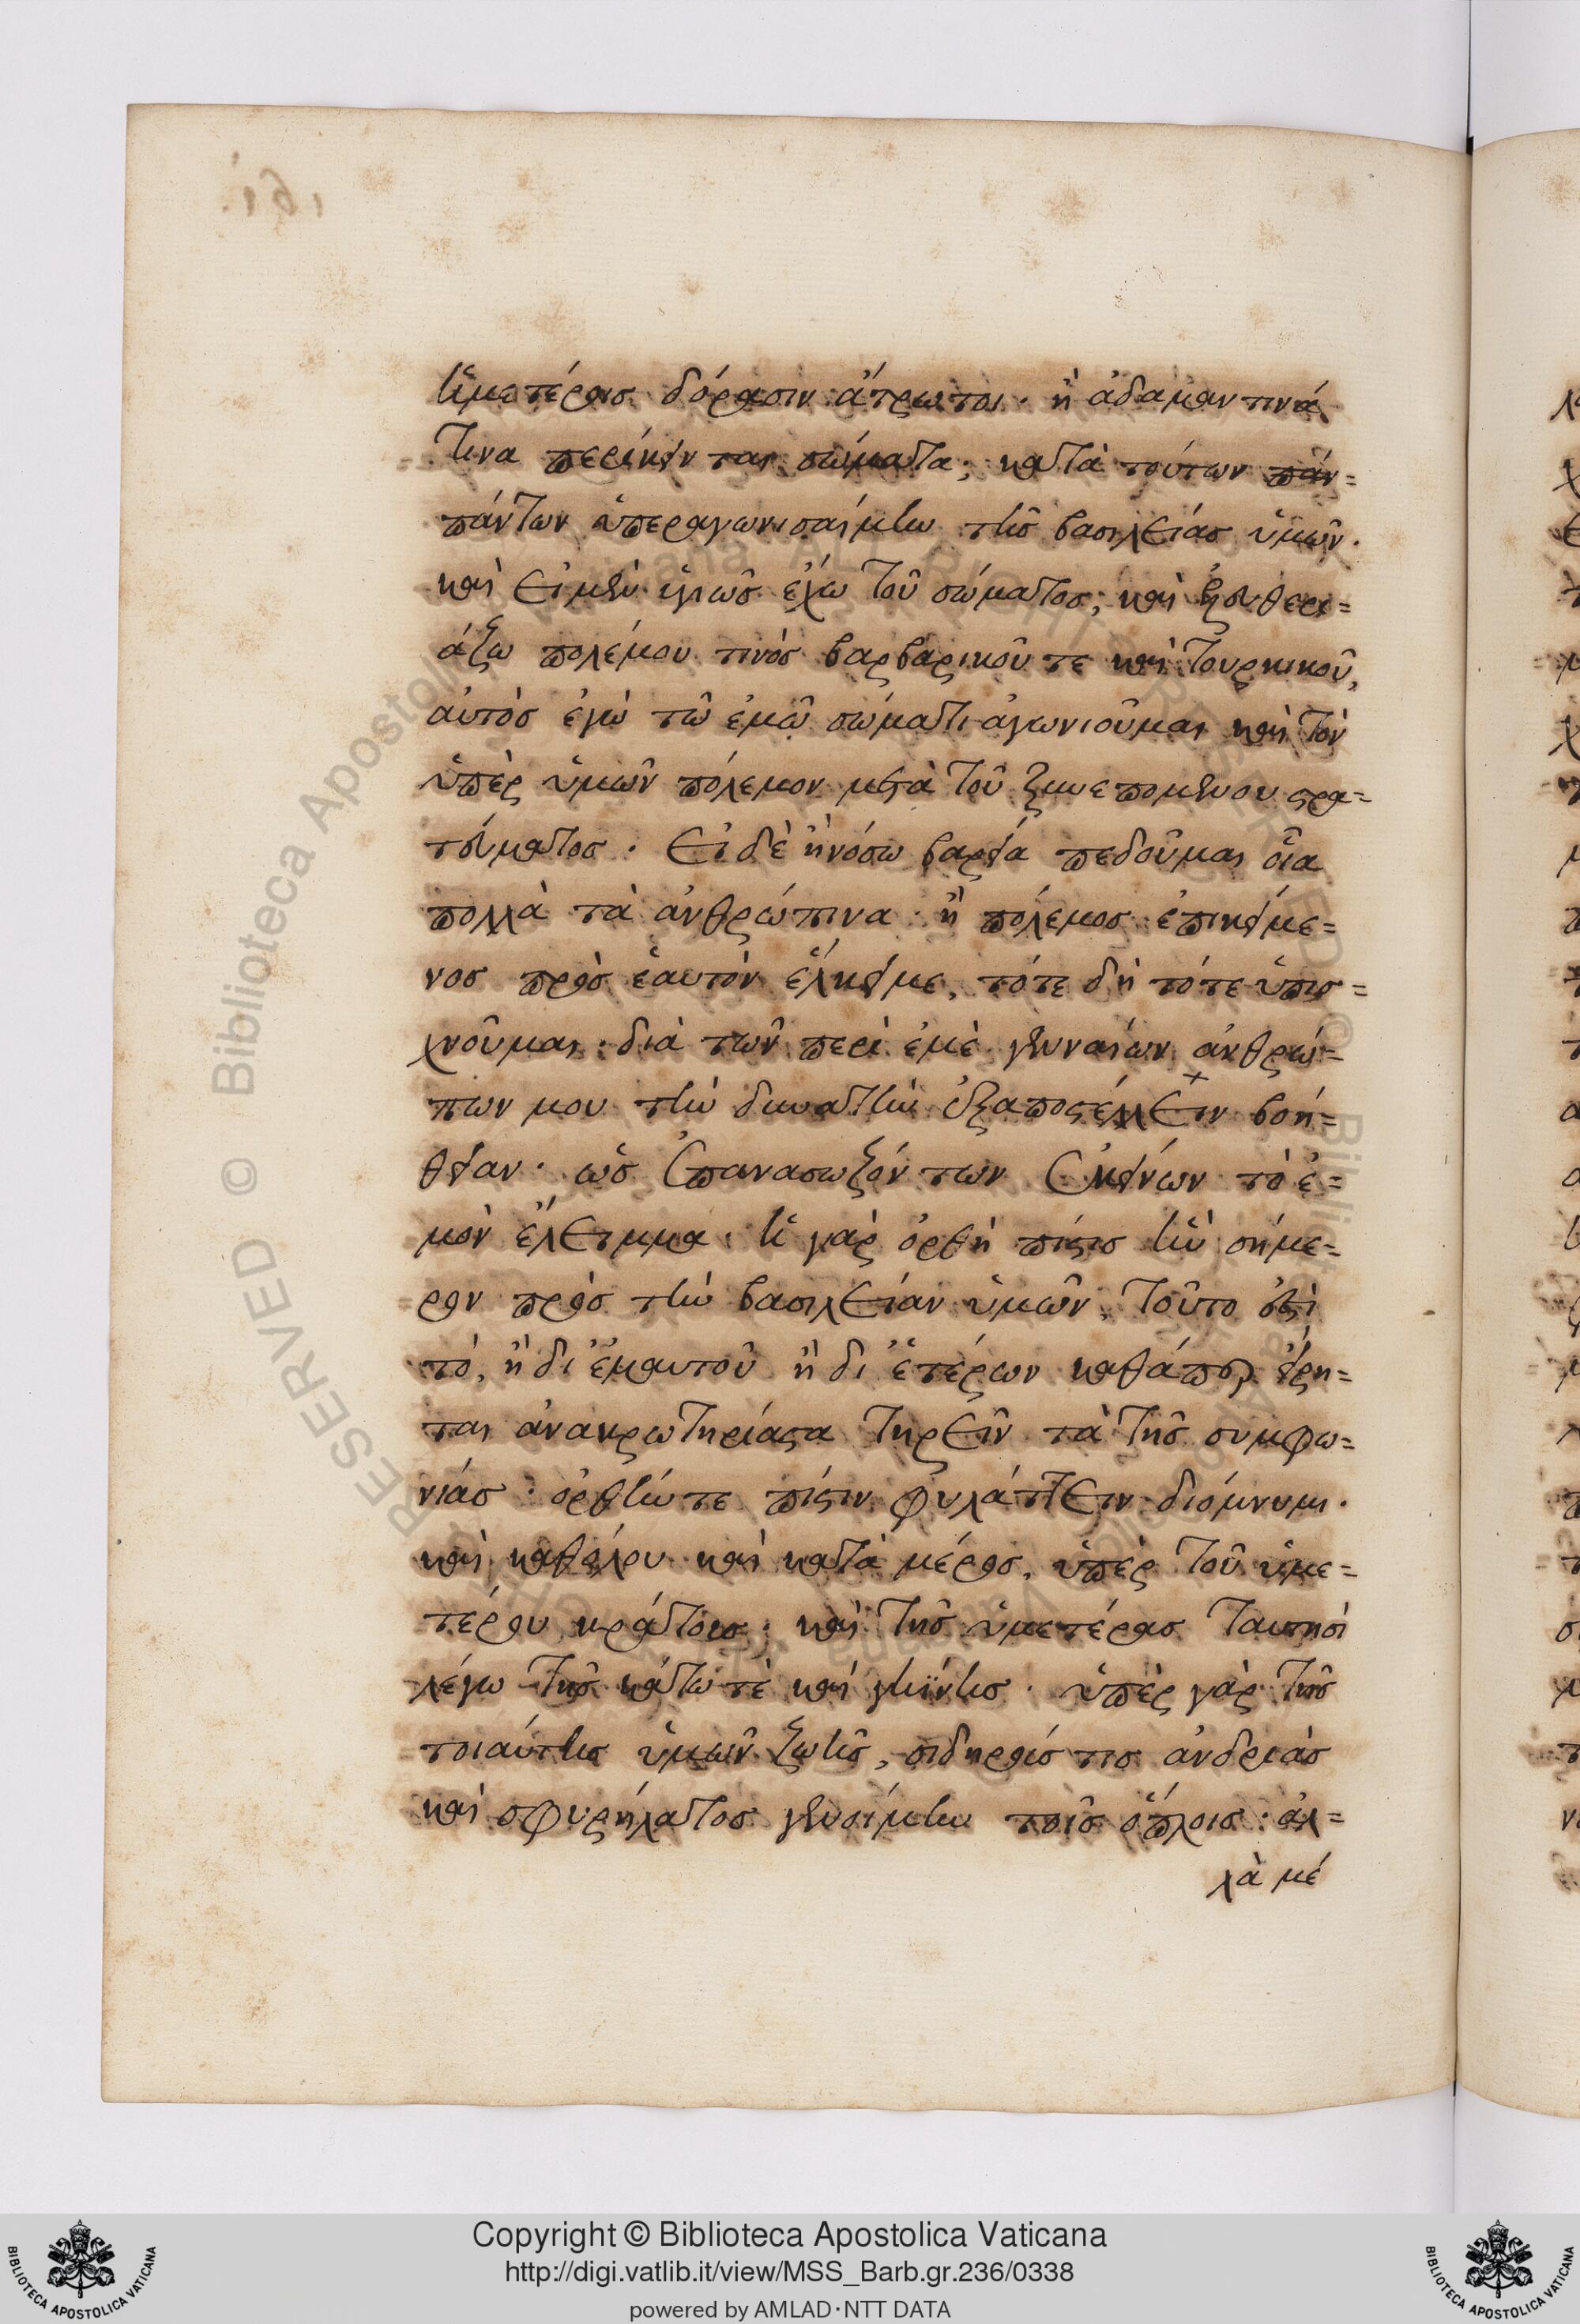 ἡμετέροις δόρασιν ἄτρωτοι· ἢ ἀδαμάντινά
τινα περίκεινται σώματα; κατὰ τούτων πάν=
πάντων ὑπεραγωνισαίμην τῆς βασιλείας ὑμῶν.
καὶ εἰ μὲν ὑγιῶς ἔχω τοῦ σώματος, καὶ ἐλευθερι=
άζω πολέμου τινὸς βαρβαρικοῦ τε καὶ τουρκικοῦ,
αὐτὸς ἐγὼ τῷ ἐμῷ σώματι ἀγωνιοῦμαι καὶ τὸν
ὑπὲρ ὑμῶν πόλεμον μετὰ τοῦ ξυνεπομένου στρα=
τεύματος. Εἰ δὲ ἢ νόσῳ βαρείᾳ πεδοῦμαι οἷα
πολλὰ τὰ ἀνθρώπινα· ἢ πόλεμος ἐπικείμε=
νος πρὸς ἑαυτὸν ἕλκει με, τότε δὴ τότε ὑπισ=
χνοῦμαι· διὰ τῶν περὶ ἐμὲ γενναίων ἀνθρώ=
πων μου τὴν δυνατὴν ἐξαποστέλλειν βοή=
θειαν· ὡς ἐπανασωζόντων ἐκείνων τὸ ἐ=
μὸν ἔλειμμα. ἡ γὰρ ὀρθὴ πίστις ἣν σήμε=
ρον πρὸς τὴν βασιλείαν ὑμῶν, τοῦτο ἐστὶ
τό, ἢ δι' ἐμαυτοῦ ἢ δι' ἑτέρων καθάπερ εἴρη=
ται ἀνακρωτηρίαστα τηρεῖν τὰ τῆς συμφω=
νίας· ὀρθήν τε πίστιν φυλάττειν διόμνυμι.
καὶ καθόλου καὶ κατὰ μέρος, ὑπὲρ τοῦ ὑμε=
τέρου κράτους· καὶ τῆς ὑμετέρας ταυτησὶ
λέγω τῆς κάτω τὲ καὶ γηΐνης. ὑπὲρ γὰρ τῆς
τοιαύτης ὑμῶν ζωῆς, σιδηροῖς τις ἀνδριὰς
καὶ σφυρήλατος γενοίμην τοῖς ὅπλοις· ἀλ=
λὰ μέ